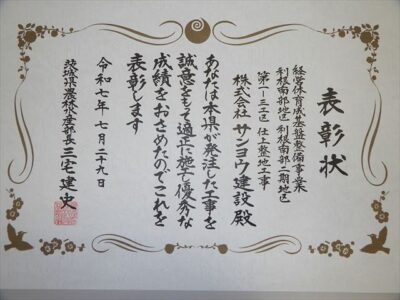 表彰状
経営体育成基盤整備事業
利根南部地区 利根南部二期地区
第一―三工区 仕上整地工事
株式会社 サンヨウ建設 殿
あなたは本県が発注した工事を
誠意をもって適正に施工し優秀な
成績をおさめたのでこれを
表彰します
令和七年七月二十九日
茨城県農林水産部長 三宅建史